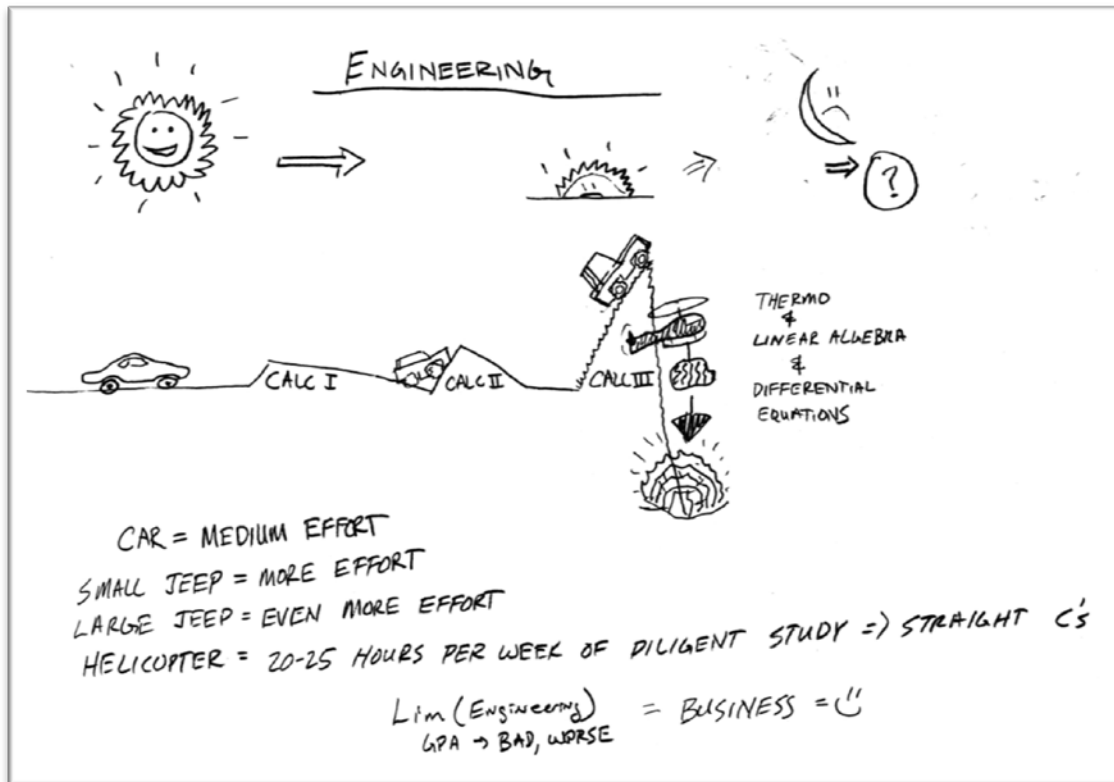 ENGINEERING
?
CALC I
CALC II
CALC III
THERMO
&
LINEAR ALGEBRA
&
DIFFERENTIAL
EQUATIONS
CAR = MEDIUM EFFORT
SMALL JEEP = MORE EFFORT
LARGE JEEP = EVEN MORE EFFORT
HELICOPTER = 20-25 HOURS PER WEEK OF DILIGENT STUDY => STRAIGHT C's
Lim (ENGINEERING) = BUSINESS =
GPA → BAD, WORSE